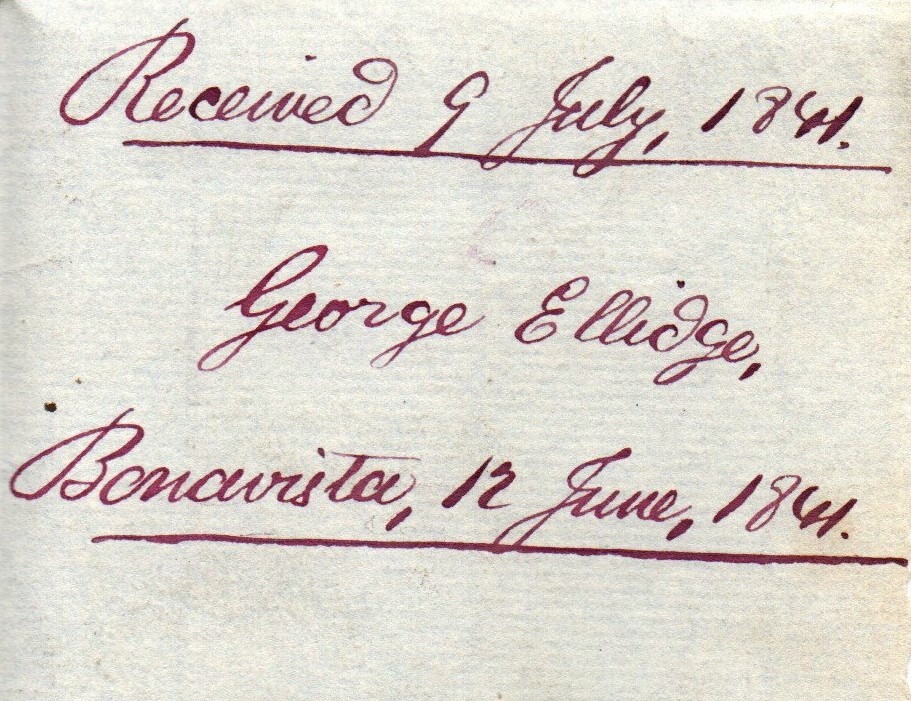 Received 9 July, 1841.
George Ellidge,
Bonavista, 12 June, 1841.